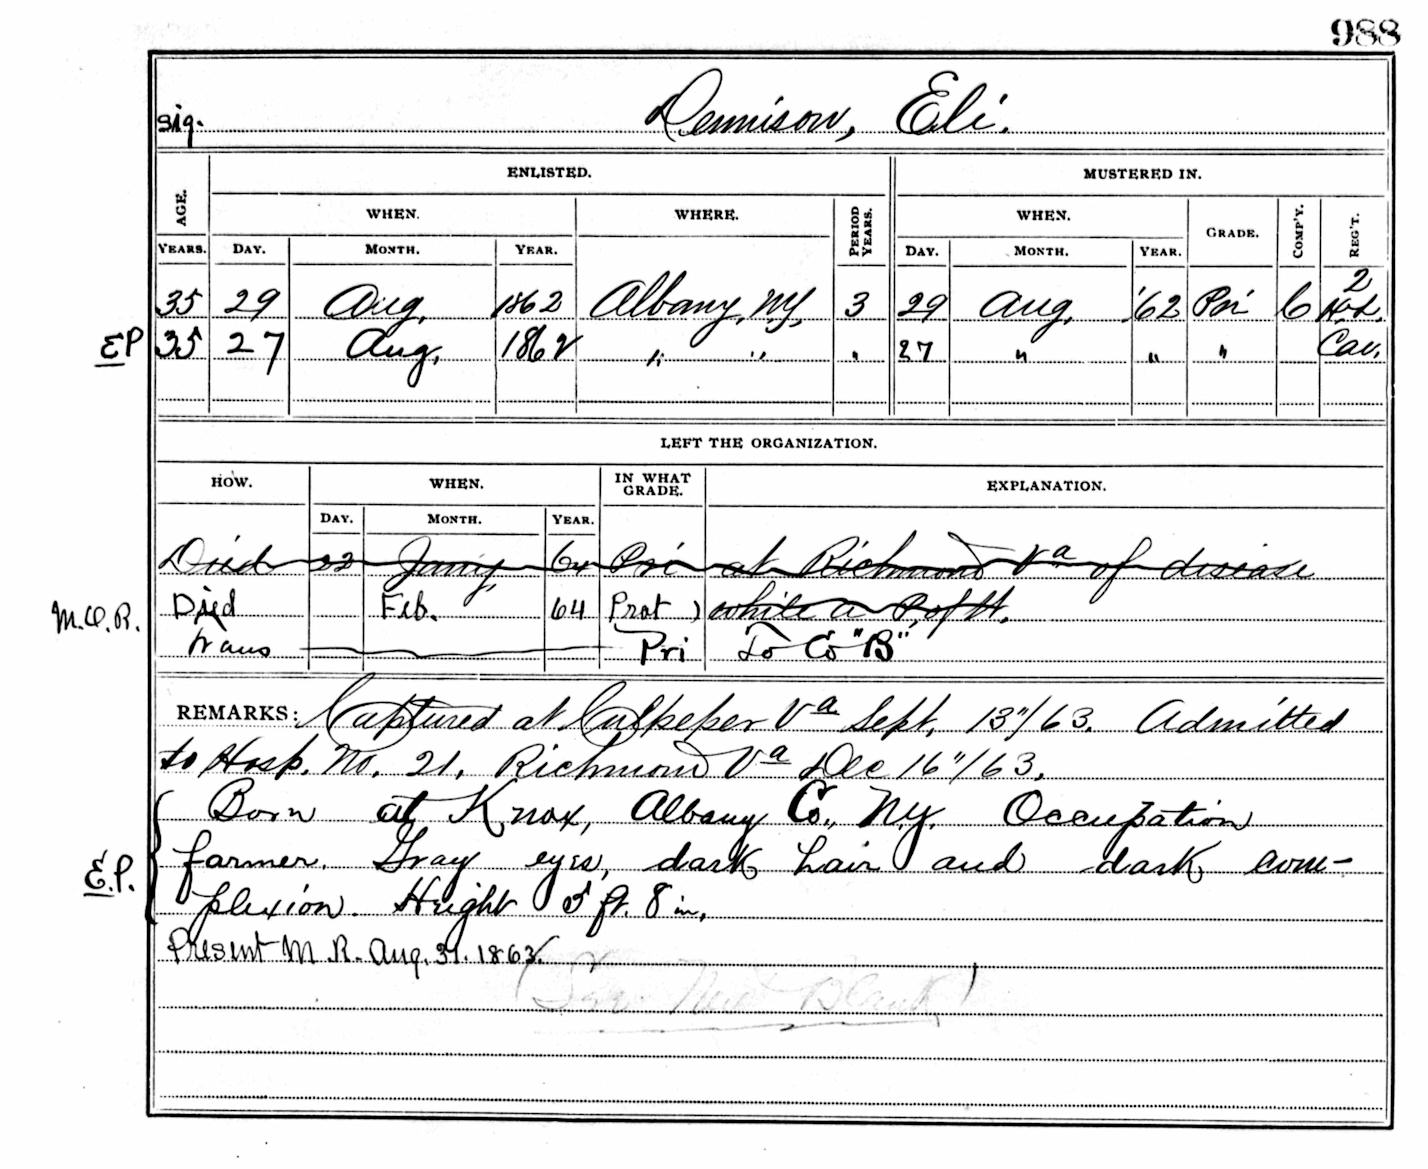 988
sig. Dennison, Eli.
ENLISTED. MUSTERED IN.
AGE. WHEN. WHERE. PERIOD YEARS. WHEN. GRADE. COMP'Y. REG'T.
YEARS. DAY. MONTH. YEAR. DAY. MONTH. YEAR.
35 29 Aug. 1862 Albany, N.Y. 3 29 Aug. '62 Pri C 2
EP 35 27 Aug. 1862 " " " 27 " " " Cav.
LEFT THE ORGANIZATION.
HOW. WHEN. IN WHAT GRADE. EXPLANATION.
DAY. MONTH. YEAR.
Died 22 Jany 64 Pri at Richmond Va of disease
M.O.R. Died Feb. 64 while a P. of W.
Trans Pri To Co "B"
REMARKS: Captured at Culpeper Va Sept. 13"/63. Admitted
to Hosp. No. 21. Richmond Va Dec 16"/63.
Born at Knox, Albany Co., N.Y. Occupation
E.P. farmer. Gray eyes, dark hair and dark com-
plexion. Height 5 ft. 8 in.
Present M. R. Aug. 31. 1863.
(See New Blank)